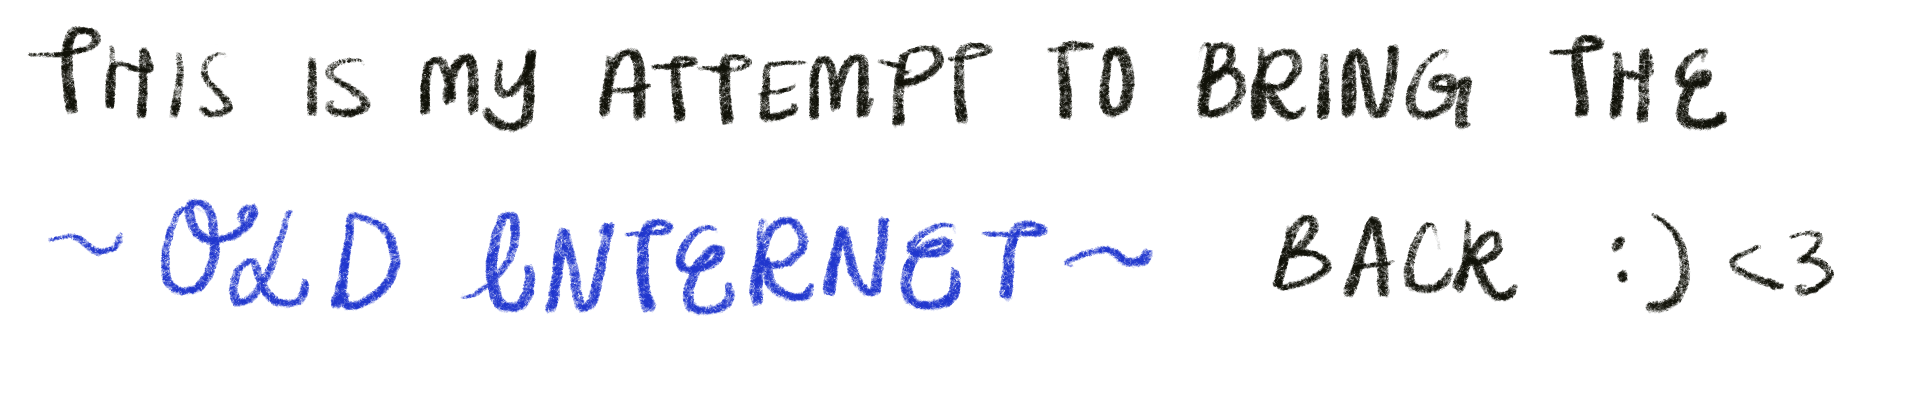 THIS IS MY ATTEMPT TO BRING THE
~ OLD INTERNET ~ BACK :) <3